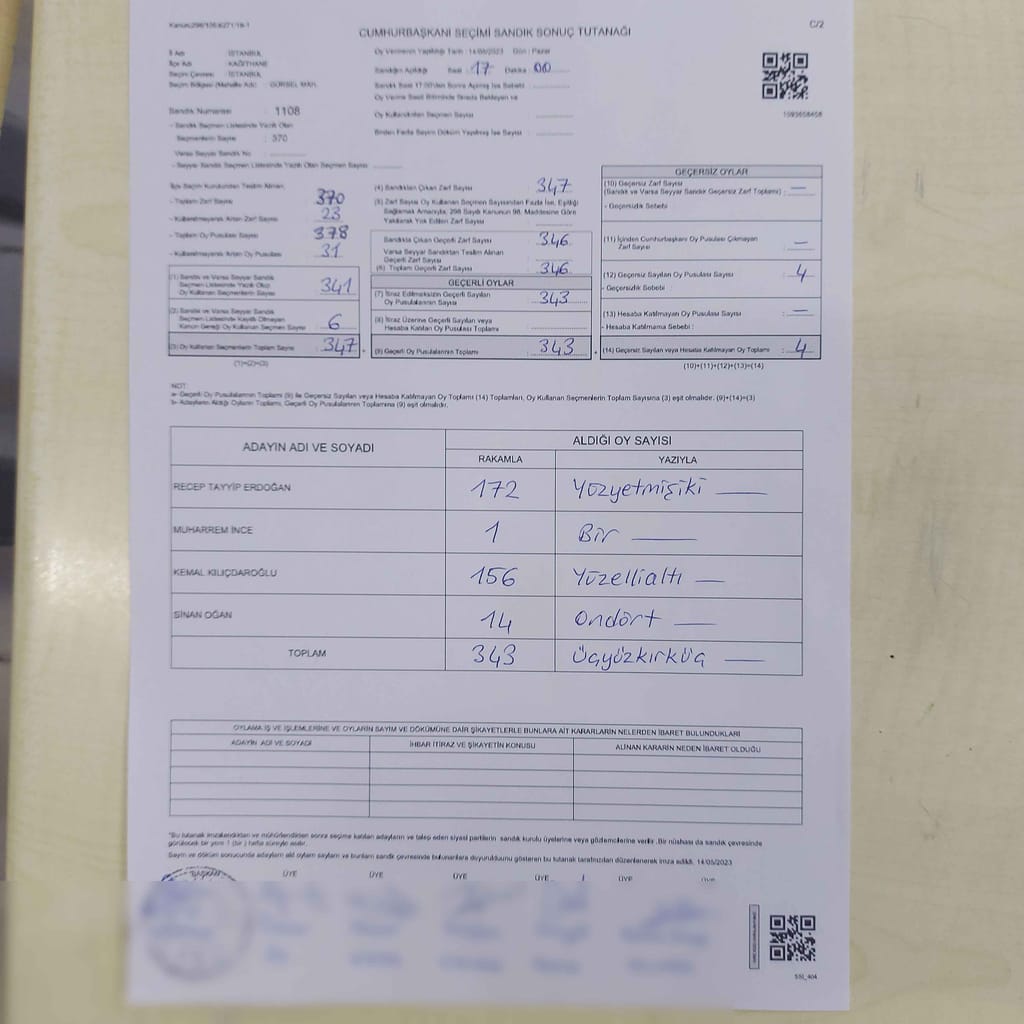 Kanun:298/156:6271/19-1
C/2
CUMHURBAŞKANI SEÇİMİ SANDIK SONUÇ TUTANAĞI
İl Adı : İSTANBUL
İlçe Adı : KAĞITHANE
Seçim Çevresi : İSTANBUL
Seçim Bölgesi (Mahalle Adı) : GÜRSEL MAH.
Oy Vermenin Yapıldığı Tarih : 14/05/2023 Gün : Pazar
Sandığın Açıldığı Saat : 17 Dakika : 00
Sandık Saat 17:00'den Sonra Açılmış İse Sebebi
Oy Verme Saati Bitiminde Sırada Bekleyen ve
Oy Kullandırılan Seçmen Sayısı
Birden Fazla Sayım Döküm Yapılmış İse Sayısı
Sandık Numarası : 1108
- Sandık Seçmen Listesinde Yazılı Olan
Seçmenlerin Sayısı : 370
Varsa Seyyar Sandık No
- Seyyar Sandık Seçmen Listesinde Yazılı Olan Seçmen Sayısı
1593658458
İlçe Seçim Kurulundan Teslim Alınan
- Toplam Zarf Sayısı : 370
- Kullanılmayarak Artan Zarf Sayısı : 23
- Toplam Oy Pusulası Sayısı : 378
- Kullanılmayarak Artan Oy Pusulası : 31
(1) Sandık ve Varsa Seyyar Sandık
Seçmen Listesinde Yazılı Olup
Oy Kullanan Seçmenlerin Sayısı : 341
(2) Sandık ve Varsa Seyyar Sandık
Seçmen Listesinde Kayıtlı Olmayan
Kanun Gereği Oy Kullanan Seçmen Sayısı : 6
(3) Oy Kullanan Seçmenlerin Toplam Sayısı : 347
(1)+(2)=(3)
(4) Sandıktan Çıkan Zarf Sayısı : 347
(5) Zarf Sayısı Oy Kullanan Seçmen Sayısından Fazla İse, Eşitliği
Sağlamak Amacıyla, 298 Sayılı Kanunun 98. Maddesine Göre
Yakılarak Yok Edilen Zarf Sayısı
Sandıkta Çıkan Geçerli Zarf Sayısı : 346
Varsa Seyyar Sandıktan Teslim Alınan
Geçerli Zarf Sayısı
(6) Toplam Geçerli Zarf Sayısı : 346
GEÇERLİ OYLAR
(7) İtiraz Edilmeksizin Geçerli Sayılan
Oy Pusulalarının Sayısı : 343
(8) İtiraz Üzerine Geçerli Sayılan veya
Hesaba Katılan Oy Pusulası Toplamı
(9) Geçerli Oy Pusulalarının Toplamı : 343
GEÇERSİZ OYLAR
(10) Geçersiz Zarf Sayısı
(Sandık ve Varsa Seyyar Sandık Geçersiz Zarf Toplamı) : —
- Geçersizlik Sebebi :
(11) İçinden Cumhurbaşkanı Oy Pusulası Çıkmayan
Zarf Sayısı : —
(12) Geçersiz Sayılan Oy Pusulası Sayısı : 4
- Geçersizlik Sebebi :
(13) Hesaba Katılmayan Oy Pusulası Sayısı : —
- Hesaba Katılmama Sebebi :
(14) Geçersiz Sayılan veya Hesaba Katılmayan Oy Toplamı : 4
(10)+(11)+(12)+(13)=(14)
NOT:
a- Geçerli Oy Pusulalarının Toplamı (9) ile Geçersiz Sayılan veya Hesaba Katılmayan Oy Toplamı (14) Toplamları, Oy Kullanan Seçmenlerin Toplam Sayısına (3) eşit olmalıdır. (9)+(14)=(3)
b- Adayların Aldığı Oyların Toplamı, Geçerli Oy Pusulalarının Toplamına (9) eşit olmalıdır.
ADAYIN ADI VE SOYADI
ALDIĞI OY SAYISI
RAKAMLA YAZIYLA
RECEP TAYYİP ERDOĞAN 172 Yüzyetmişiki
MUHARREM İNCE 1 Bir
KEMAL KILIÇDAROĞLU 156 Yüzellialtı
SİNAN OĞAN 14 Ondört
TOPLAM 343 Üçyüzkırküç
OYLAMA İŞ VE İŞLEMLERİNE VE OYLARIN SAYIM VE DÖKÜMÜNE DAİR ŞİKAYETLERLE BUNLARA AİT KARARLARIN NELERDEN İBARET BULUNDUKLARI
ADAYIN ADI VE SOYADI İHBAR İTİRAZ VE ŞİKAYETİN KONUSU ALINAN KARARIN NEDEN İBARET OLDUĞU
"Bu tutanak imzalandıktan ve mühürlendikten sonra seçime katılan adayların ve talep eden siyasi partilerin sandık kurulu üyelerine veya gözlemcilerine verilir. Bir nüshası da sandık çevresinde
görülecek bir yere 1 (bir) hafta süreyle asılır.
Sayım ve döküm sonucunda adayların aldığı oyların sayılarını ve bunların sandık çevresinde bulunanlara duyurulduğunu gösteren bu tutanak tarafımızdan düzenlenerek imza edildi. 14/05/2023
BAŞKAN ÜYE ÜYE ÜYE ÜYE ÜYE ÜYE
SSL_404